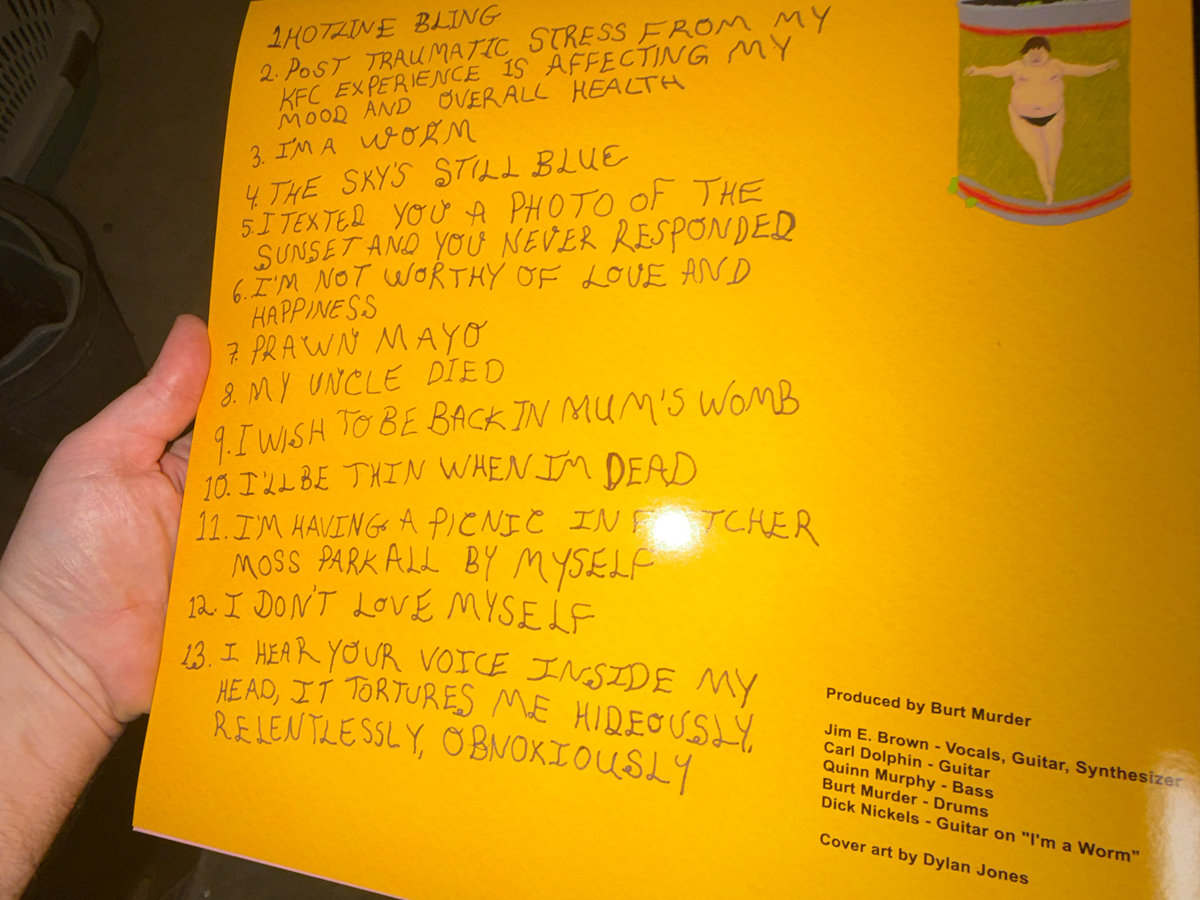 1 HOTLINE BLING
2. POST TRAUMATIC STRESS FROM MY
KFC EXPERIENCE IS AFFECTING MY
MOOD AND OVERALL HEALTH
3. I'M A WORM
4. THE SKY'S STILL BLUE
5. I TEXTED YOU A PHOTO OF THE
SUNSET AND YOU NEVER RESPONDED
6. I'M NOT WORTHY OF LOVE AND
HAPPINESS
7. PRAWN MAYO
8. MY UNCLE DIED
9. I WISH TO BE BACK IN MUM'S WOMB
10. I'LL BE THIN WHEN I'M DEAD
11. I'M HAVING A PICNIC IN FLETCHER
MOSS PARK ALL BY MYSELF
12. I DON'T LOVE MYSELF
13. I HEAR YOUR VOICE INSIDE MY
HEAD, IT TORTURES ME HIDEOUSLY,
RELENTLESSLY, OBNOXIOUSLY
Produced by Burt Murder
Jim E. Brown - Vocals, Guitar, Synthesizer
Carl Dolphin - Guitar
Quinn Murphy - Bass
Burt Murder - Drums
Dick Nickels - Guitar on "I'm a Worm"
Cover art by Dylan Jones